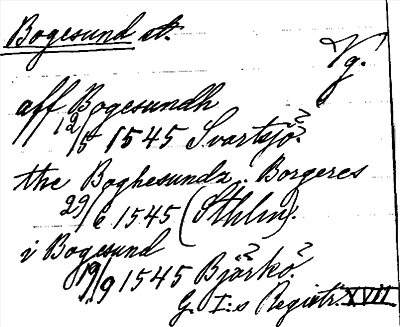 Bogesund st.
Vg.
aff Bogesundh
12/5 1545 Svartsjö.
the Boghesunda. Borgeres
29/6 1545 (Sthlm).
i Bogesund
19/9 1545 Bjärkö.
G. I:s Registr. XVII